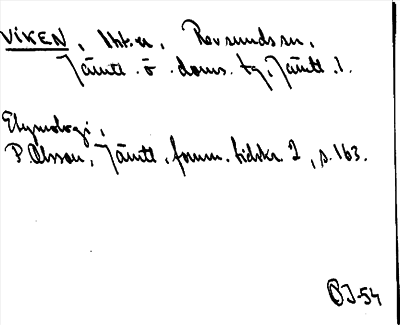 VIKEN, Iht.n, Revsundsn,
Jämtl. ö. doms. tg, Jämtl. l.
Etymologi,
P. Olsson, Jämtl. fornm. tidskr. 2, s. 163.
OJ-54